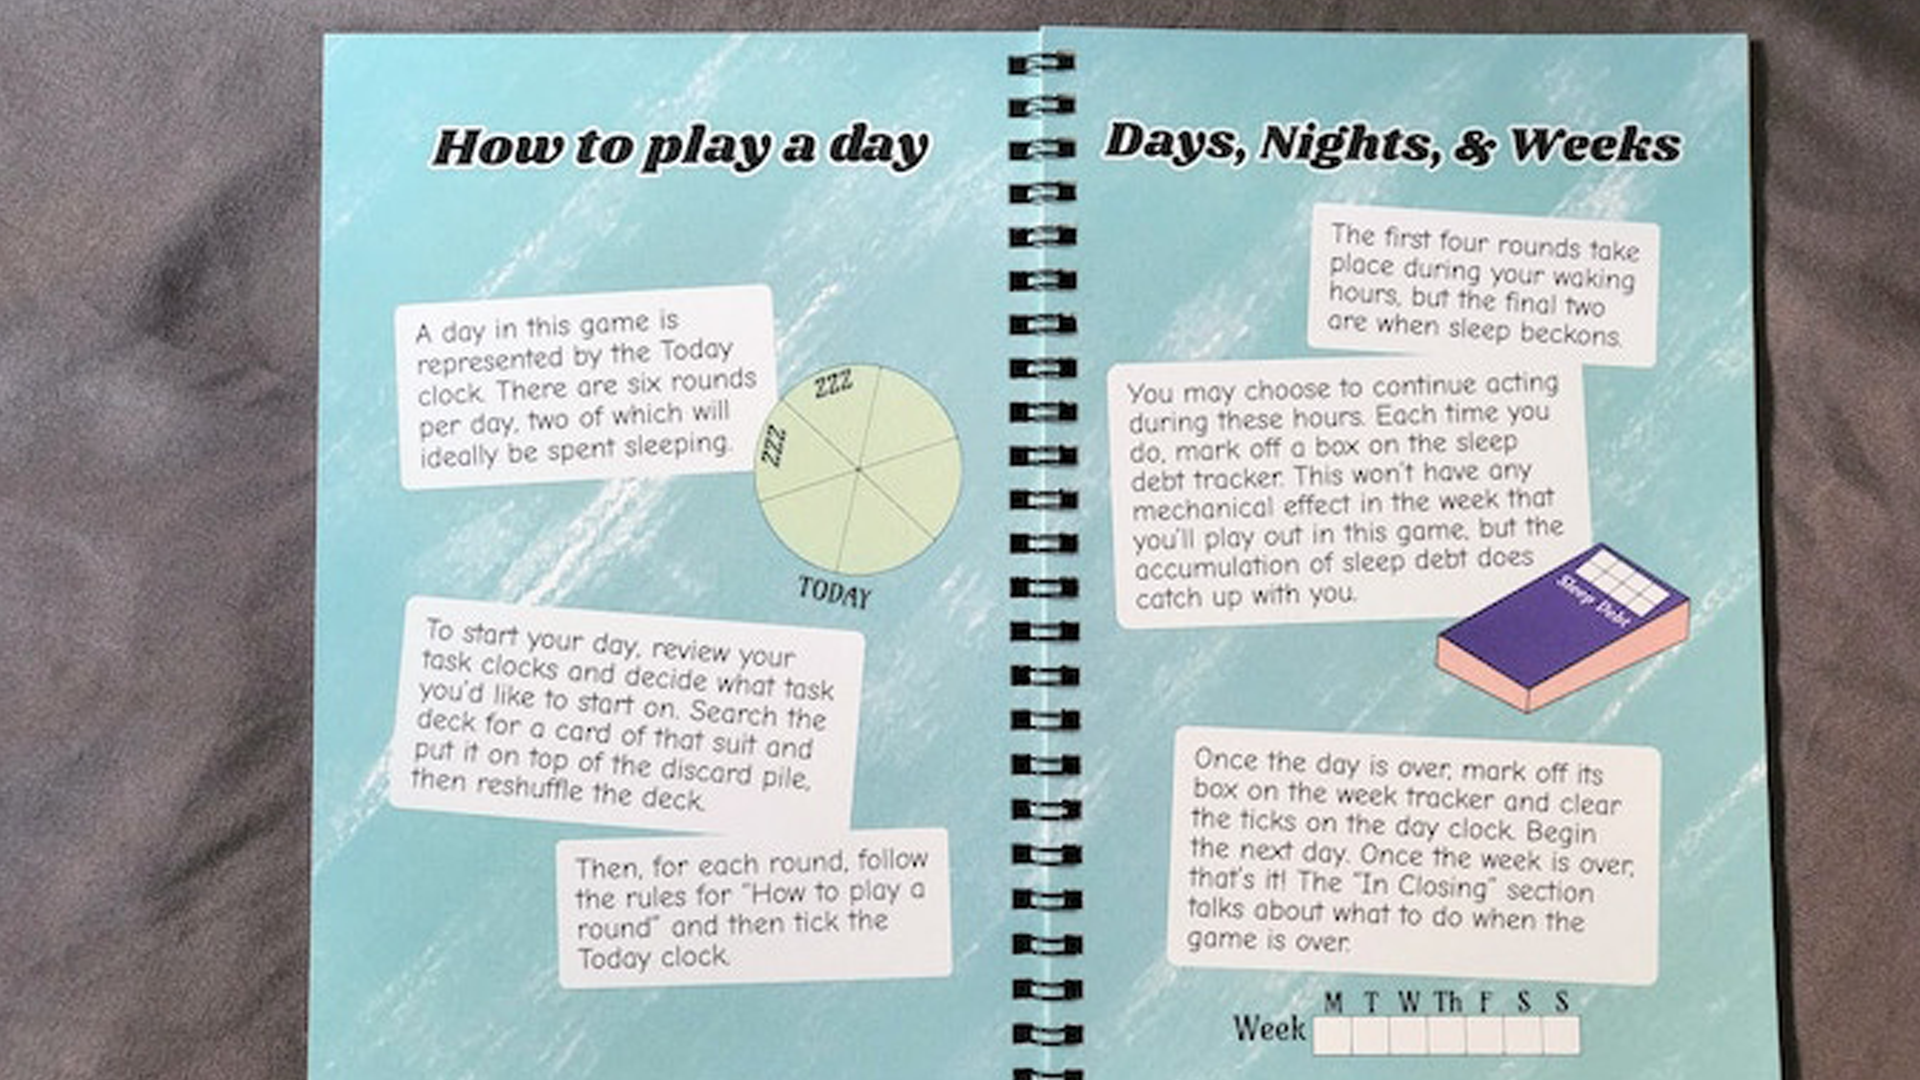 How to play a day
A day in this game is
represented by the Today
clock. There are six rounds
per day, two of which will
ideally be spent sleeping.
ZZZ
ZZZ
TODAY
To start your day, review your
task clocks and decide what task
you'd like to start on. Search the
deck for a card of that suit and
put it on top of the discard pile,
then reshuffle the deck.
Then, for each round, follow
the rules for "How to play a
round" and then tick the
Today clock.
Days, Nights, & Weeks
The first four rounds take
place during your waking
hours, but the final two
are when sleep beckons.
You may choose to continue acting
during these hours. Each time you
do, mark off a box on the sleep
debt tracker. This won't have any
mechanical effect in the week that
you'll play out in this game, but the
accumulation of sleep debt does
catch up with you.
Sleep Debt
Once the day is over, mark off its
box on the week tracker and clear
the ticks on the day clock. Begin
the next day. Once the week is over,
that's it! The "In Closing" section
talks about what to do when the
game is over.
M T W Th F S S
Week